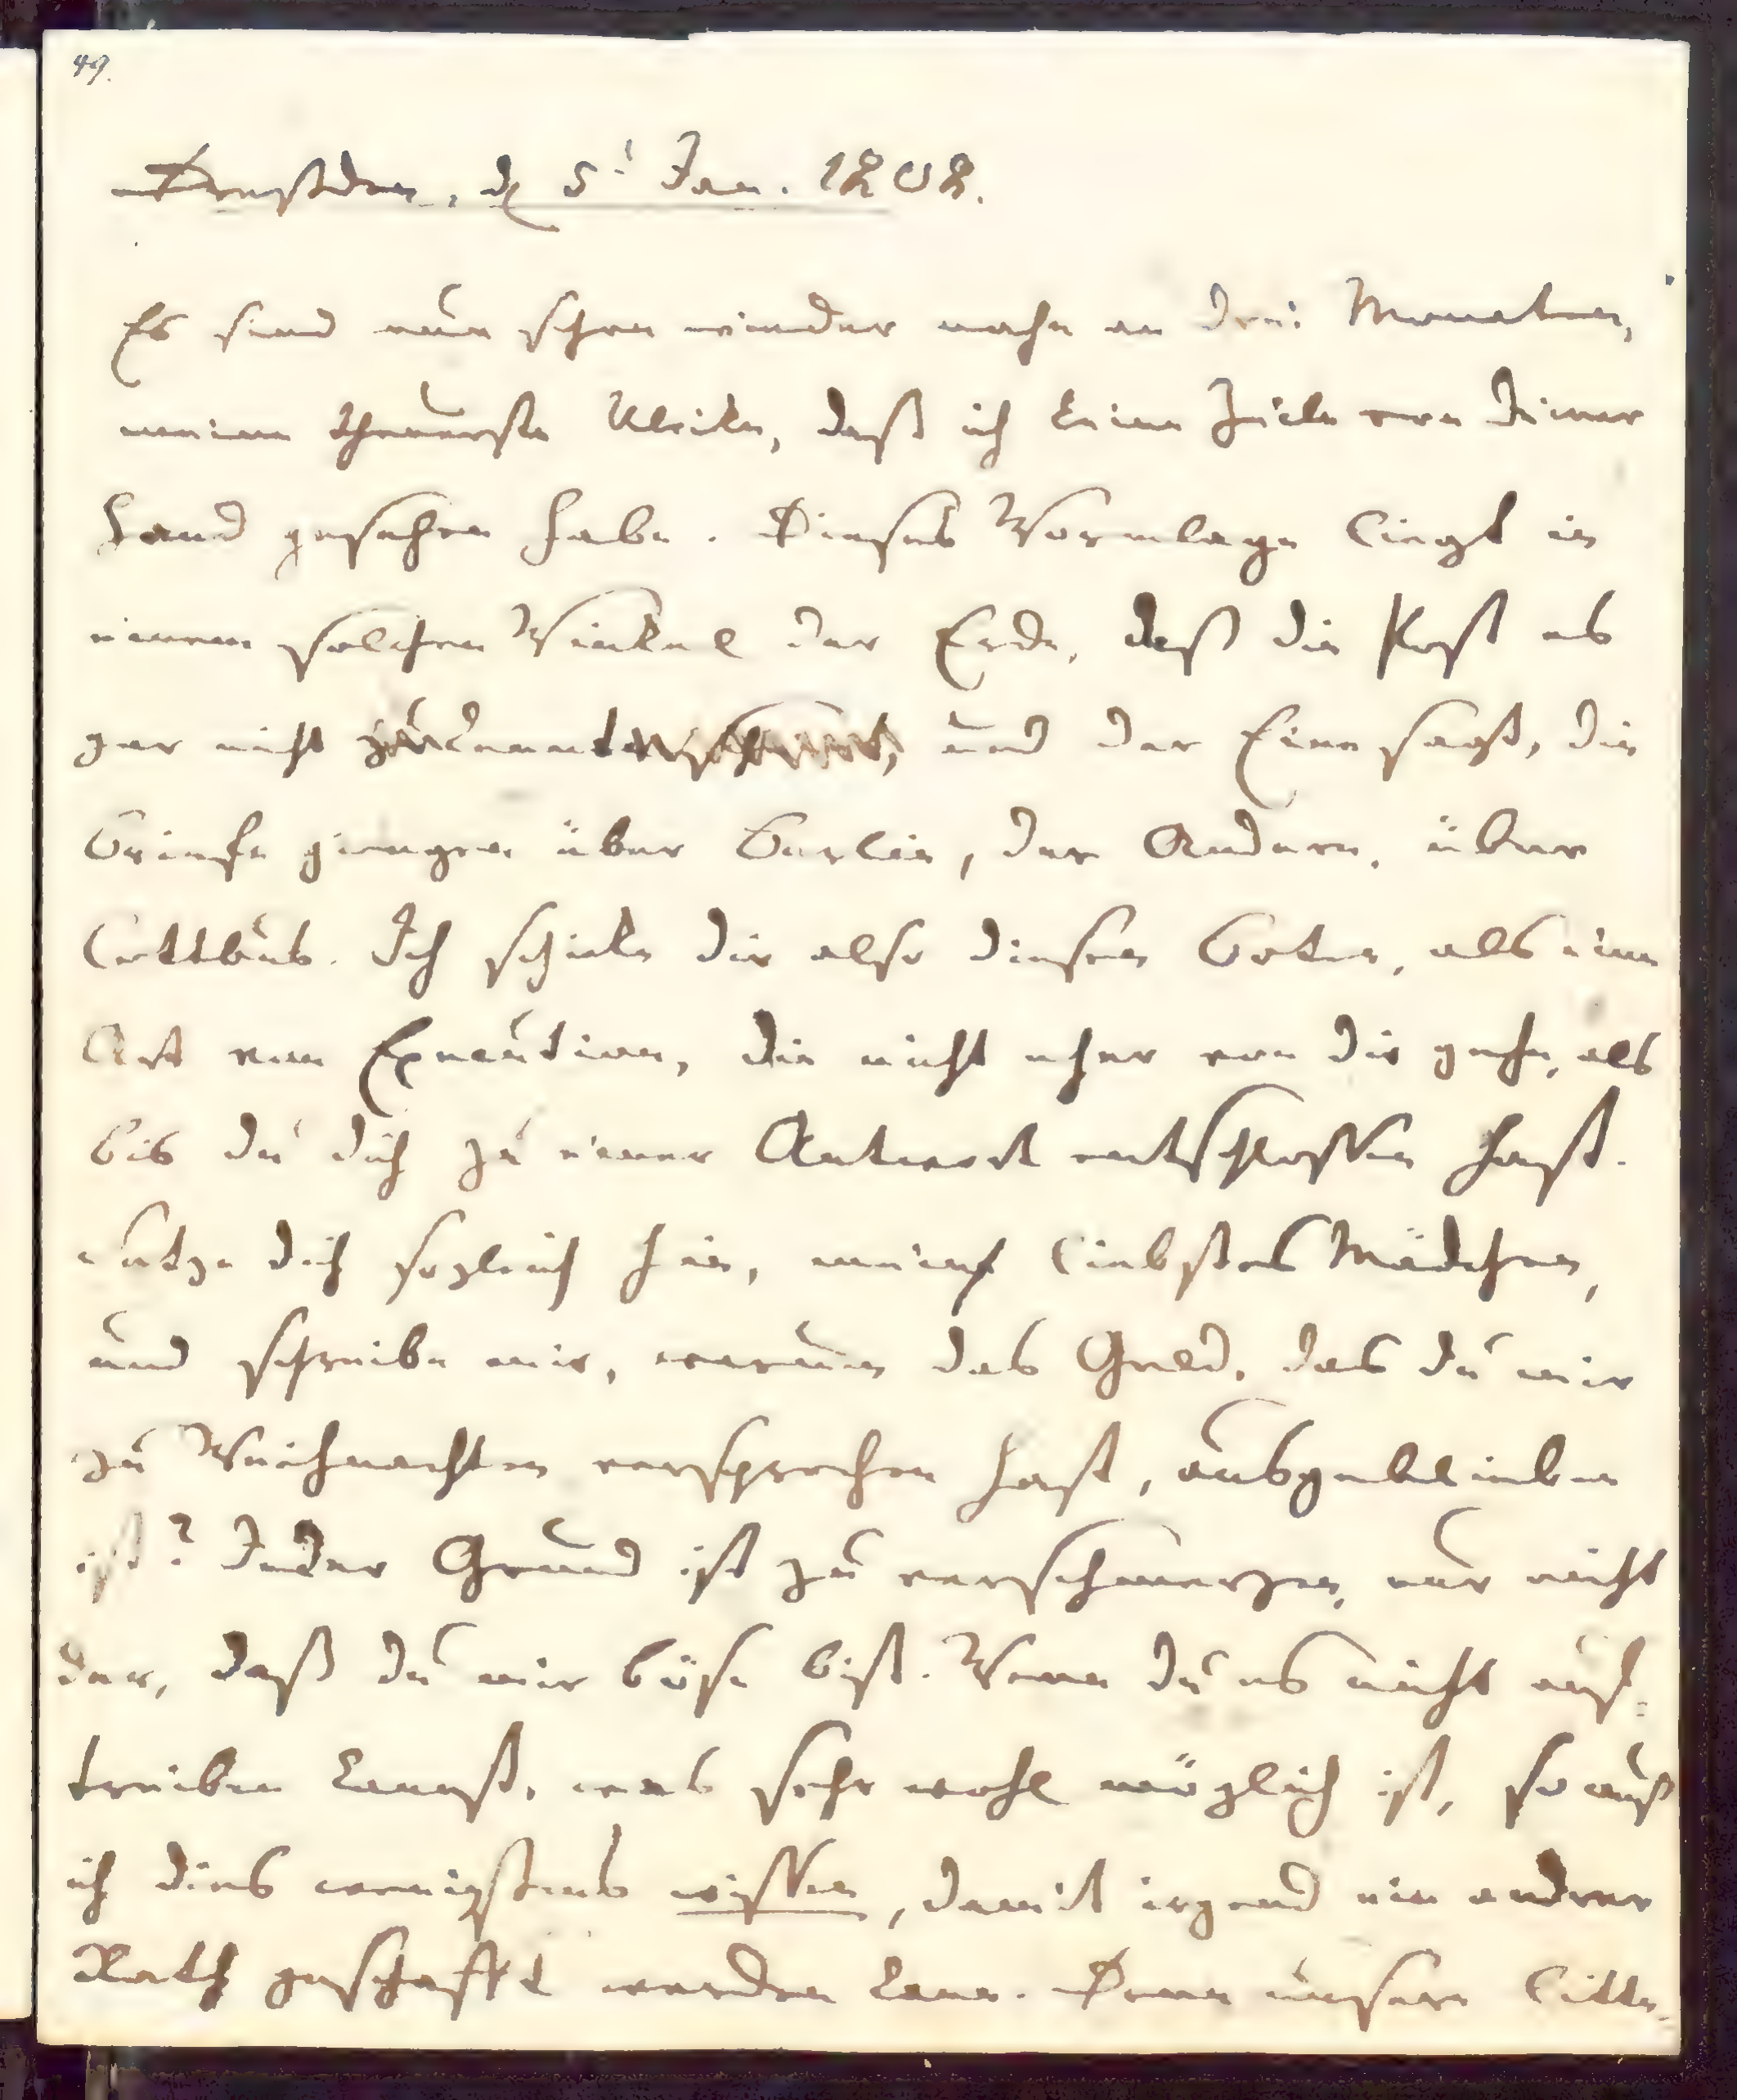 49.
Dresden, d 5t Jan. 1808.
Es sind nun schon wieder nahe an drei Monaten,
meine theuerste Ulrike, daß ich keine Zeile von deiner
Hand gesehen habe. Dieses Wormlage liegt in
einem solchen Winkel der Erde, daß die Post es
gar nicht kennt, und der Eine sagt, die
Briefe giengen über Berlin, der Andere, über
Cottbus. Ich schicke dir also diesen Boten, als eine
Art von Execution, die nicht eher von dir gehe, als
bis du dich zu einer Antwort entschlossen hast.
Setze dich sogleich hin, mein liebstes Mädchen,
und schreibe mir, warum das Geld, das du mir
zu Weihnachten versprochen hast, ausgeblieben
ist? Jeder Grund ist zu verschmerzen, nur nicht
der, daß du mir böse bist. Wenn du es nicht auf-
treiben kannst, was sehr wohl möglich ist, so muß
ich dies wenigstens wissen, damit irgend ein andrer
Rath geschafft werden kann. Denn unsere litte-